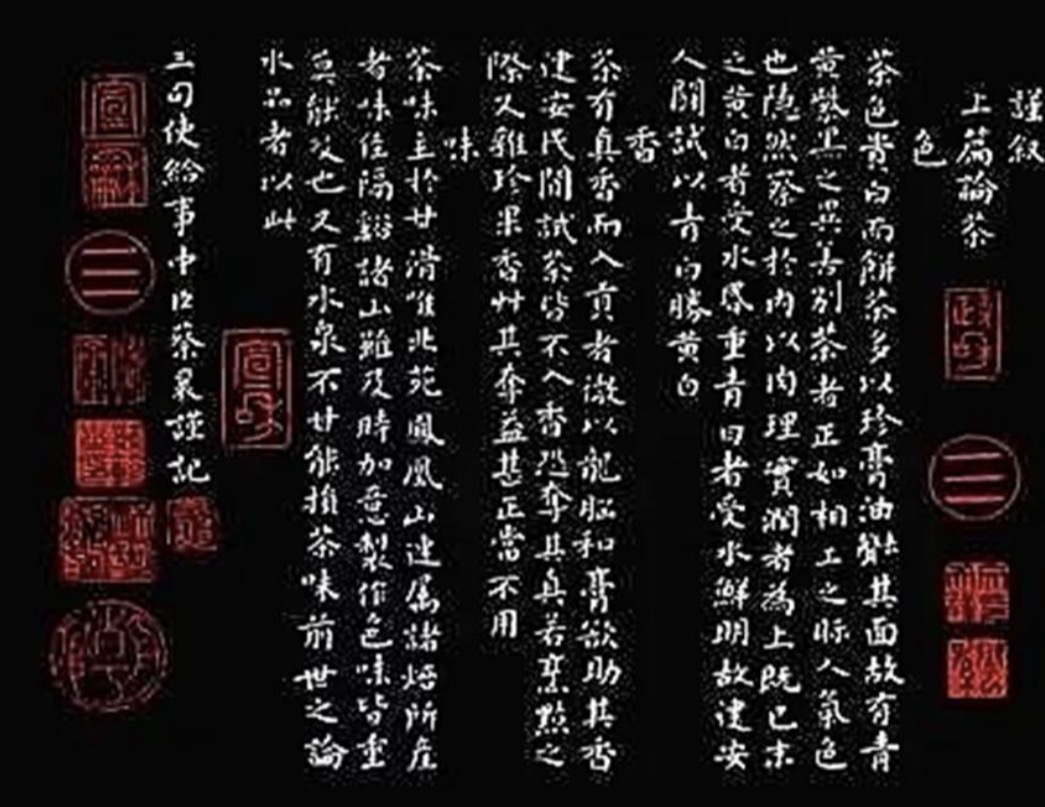 謹叙
上篇論茶
色
茶色貴白而餅茶多以珍膏油其面故有青
黃紫黑之異善別茶者正如相工之眎人氣色
也隱然察之於內以肉理實潤者為上既已末
之黃白者受水昬重青白者受水鮮明故建安
人鬪試以青白勝黃白
香
茶有真香而入貢者微以龍腦和膏欲助其香
建安民間試茶皆不入香恐奪其真若烹點之
際又雜珍果香艸其奪益甚正當不用
味
茶味主於甘滑惟北苑鳳凰山連屬諸焙所產
者味佳隔谿諸山雖及時加意製作色味皆重
莫能及也又有水泉不甘能損茶味前世之論
水品者以此
三司使給事中臣蔡襄謹記